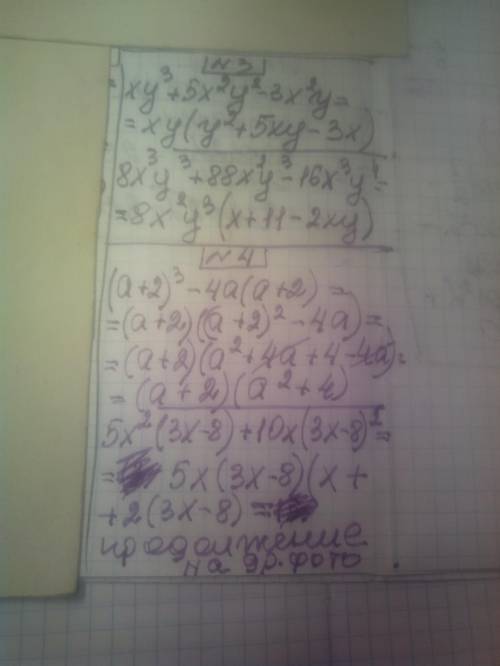 №3
xy³+5x²y²-3x²y=
=xy(y²+5xy-3x)
8x³y³+88x²y³-16x³y⁴=
=8x²y³(x+11-2xy)
№4
(a+2)³-4a(a+2)=
=(a+2)((a+2)²-4a)=
=(a+2)(a²+4a+4-4a)=
=(a+2)(a²+4)
5x²(3x-8)+10x(3x-8)²=
= 5x(3x-8)(x+
+2(3x-8)=
продолжение
на др. фото